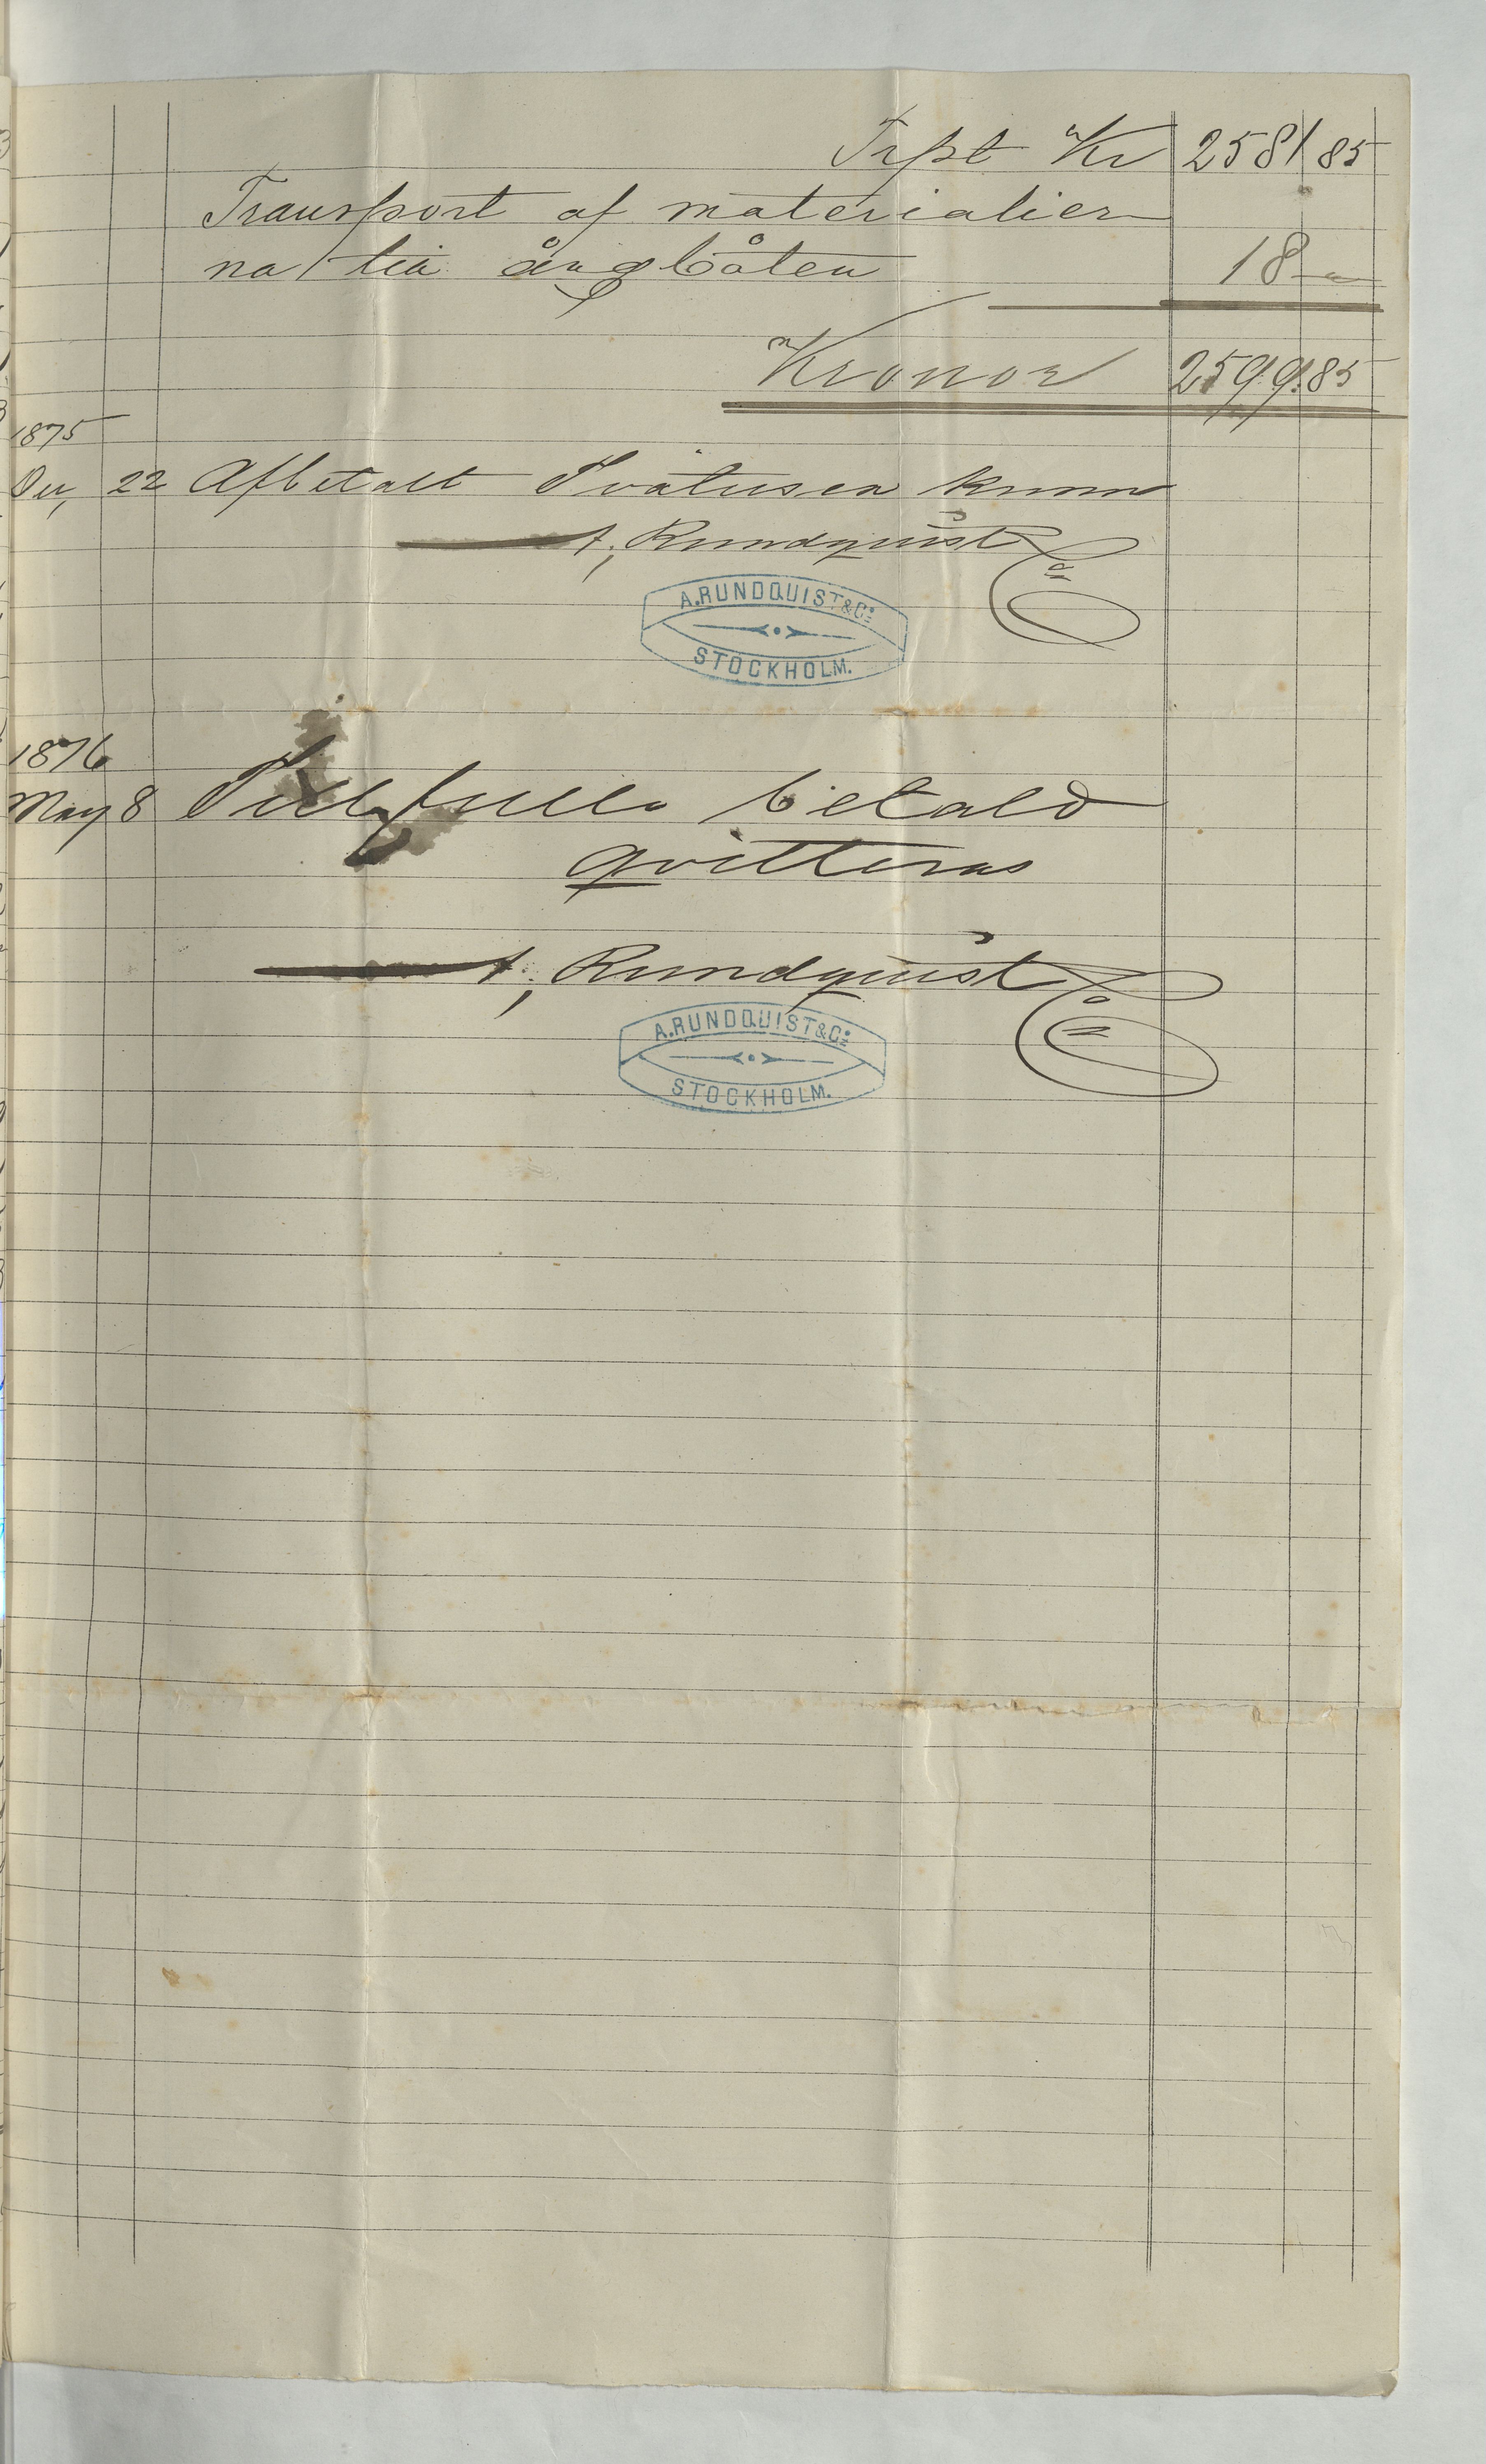 Trspt Kr 2581 85
Transport af materialier
na till ångbåten 18 —
Kronor 2599.85
1875
Dec, 22 Afbetalt Tvåtusen kronor
A, Rundquist
A. RUNDQUIST & Co
STOCKHOLM.
1876
May 8 Till fullo betald
qvitteras
A, Rundquist
A. RUNDQUIST & Co
STOCKHOLM.